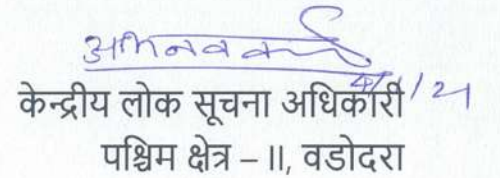 अभिनव वर्मा
4/1/21
केन्द्रीय लोक सूचना अधिकारी
पश्चिम क्षेत्र – II, वडोदरा